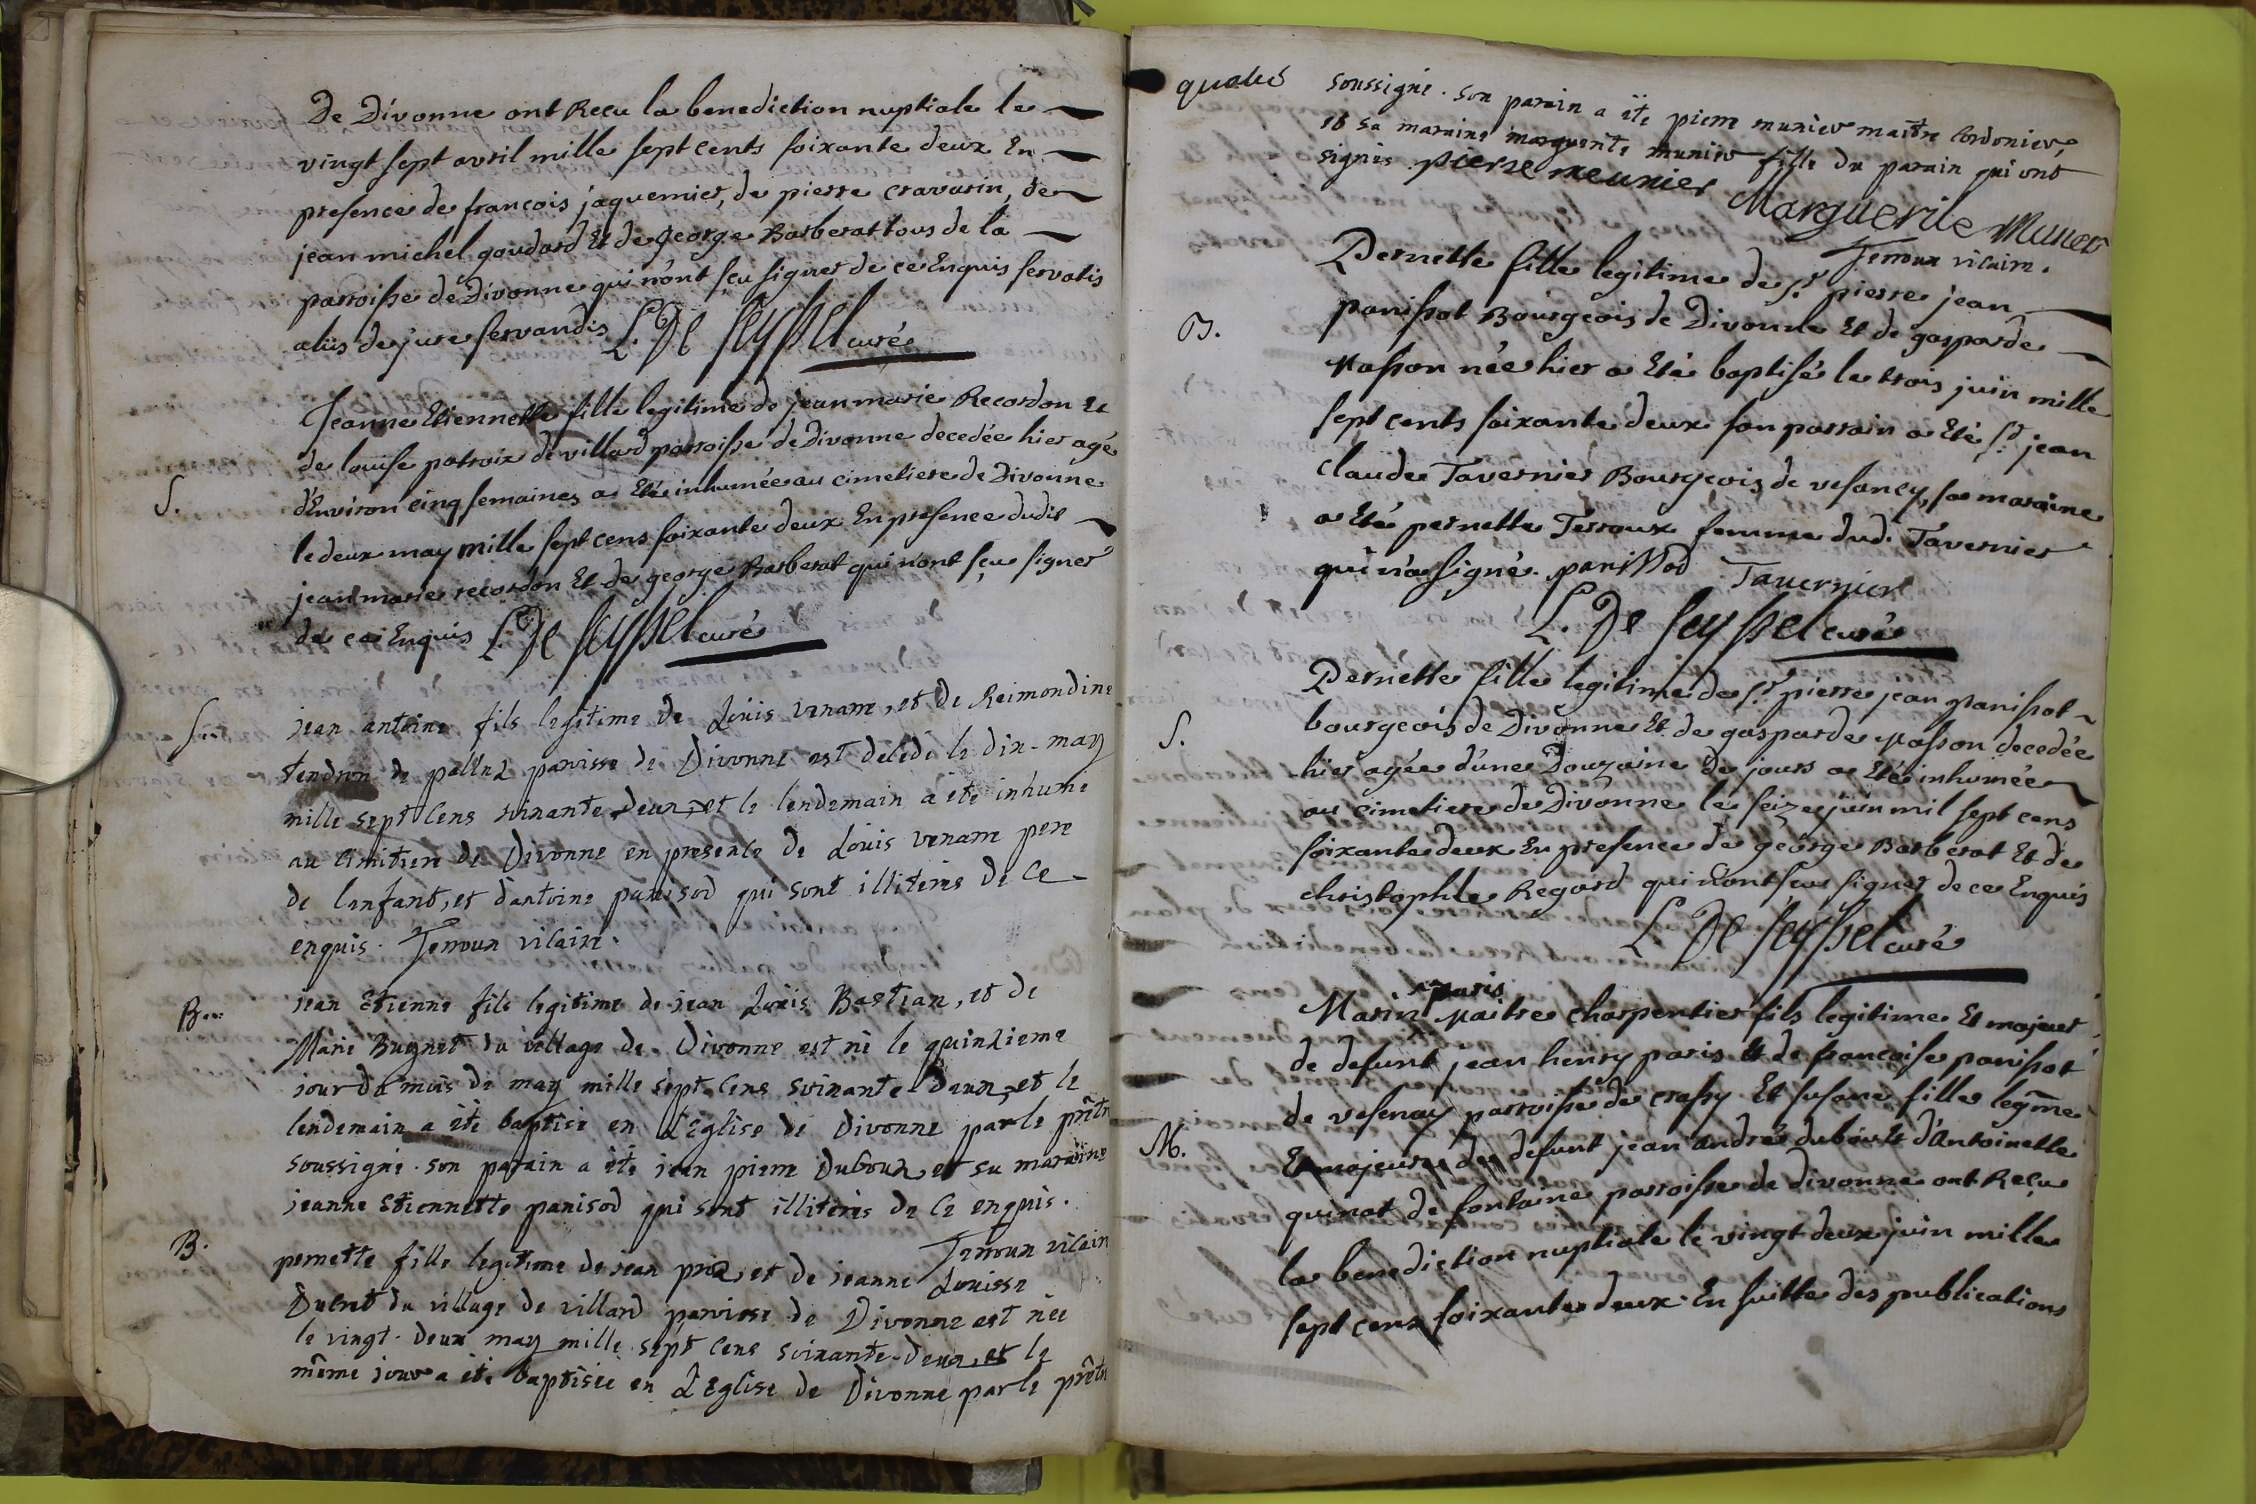 De Divonne ont Recu la benediction nuptiale le
vingt sept avril mille sept cents soixante deux En
presence de francois jaquemier, de pierre cravarin, de
jean michel goudard Et de george Barberat tous de la
parroisse de Divonne qui n'ont sçu signer de ce Enquis servatis
aliis de jure servandis L. De Seyssel curé
Jeanne Etiennette fille legitime de jean marie Recordon Et
de louise patroix de villard parroisse de Divonne decedée hier agé
S.
d'Environ cinq semaines a Eté inhumée au cimetiere de Divonne
le deux may mille sept cens soixante deux En presence dudit
jean marie recordon Et de george Barberat qui n'ont sçu signer
de ce Enquis L. De Seyssel curé
S..
jean antoine fils legitime de Louis venarre, et de Reimondine
tendron de palluz paroisse de Divonne est decedé le dix-may
mille sept cens soixante deux, et le lendemain a eté inhumé
au cimitiere de Divonne en presence de Louis venarre pere
de l'enfant, et d'antoine panisod qui sont illiterés de ce
enquis. Terroux vicaire.
B..
jean Etienne fils legitime de jean Louis Bastian, et de
Marie Bugnet du village de Divonne est né le quinzieme
jour du mois de may mille sept cens soixante deux, et le
lendemain a eté baptisé en L'Eglise de Divonne par le prêtre
soussigné. son parain a eté jean pierre Duboux et sa maraine
jeanne Etiennette panisod qui sont illiterés de ce enquis.
Terroux vicaire
B.
pernette fille legitime de jean prix, et de jeanne Louisse
Ducret du village de villard paroisse de Divonne est née
le vingt-deux may mille sept cens soixante-deux, et le
même jour a eté baptisée en L'Eglise de Divonne par le prêtre
soussigné. son parain a eté pierre munier maitre Cordonier,
et sa maraine marguerite munier fille du parain qui ont
signés. pierre meunier Marguerite Munier
Terroux vicaire.
Pernette fille legitime de Sr. pierre jean
B.
panissot Bourgeois de Divonne Et de gasparde
Masson née hier a Eté baptisé le trois juin mille
sept cents soixante deux son parrain a Eté Sr. jean
claude Tavernier Bourgeois de vesancy, sa maraine
a Eté pernette Terroux femme dud. Tavernier
qui n'a signé. panissod Tavernier
L. De Seyssel curé
Pernette fille legitime de Sr. pierre jean panissot
S.
bourgeois de Divonne Et de gasparde Masson decedée
hier agée d'une Douzaine de jours a Eté inhumée
au cimetiere de Divonne le seize juin mil sept cens
soixante deux En presence de george Barberat Et de
christophle Regard qui n'ont sçu signer de ce Enquis
L. De Seyssel curé
paris
Marin Maitre charpentier fils legitime Et majeur
de defunt jean henry paris Et de francoise panissot
de vesenay parroisse de crassy Et susane fille legme
M.
Et majeure de defunt jean andré dubois Et d'Antoinette
quinat de fontaine parroisse de divonne ont Reçu
la benediction nuptiale le vingt deux juin mille
sept cens soixante deux En suitte des publications